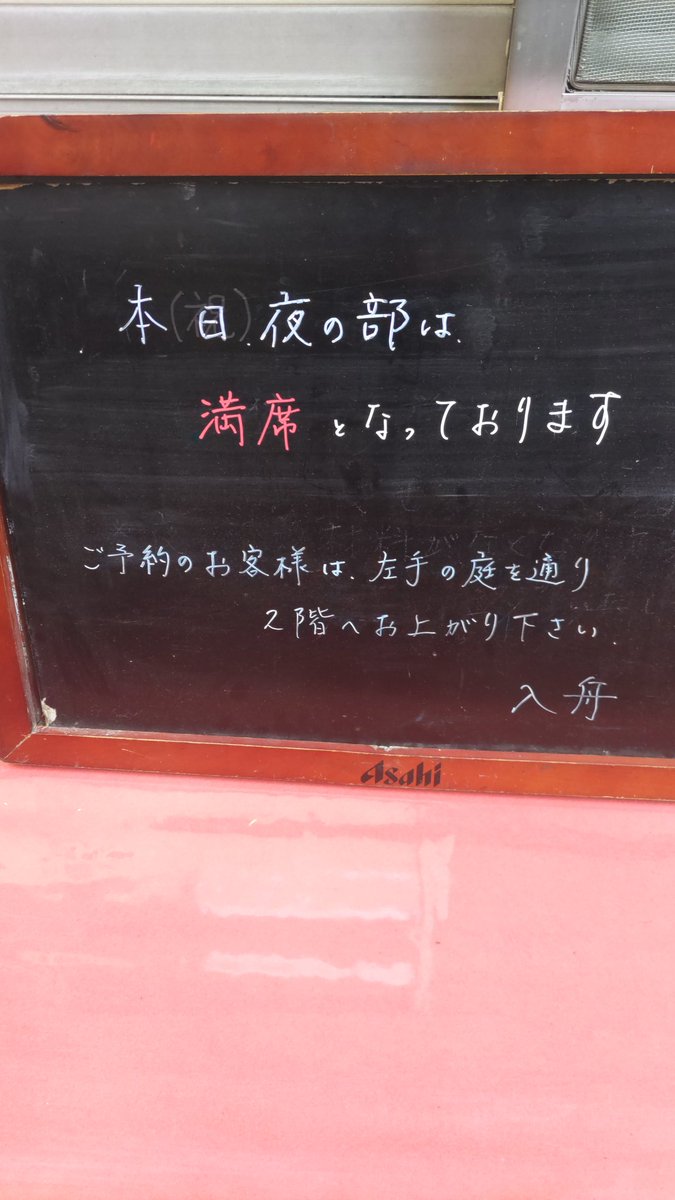 本日夜の部は、
満席となっております
ご予約のお客様は、左手の庭を通り
2階へお上がり下さい。
入舟
Asahi